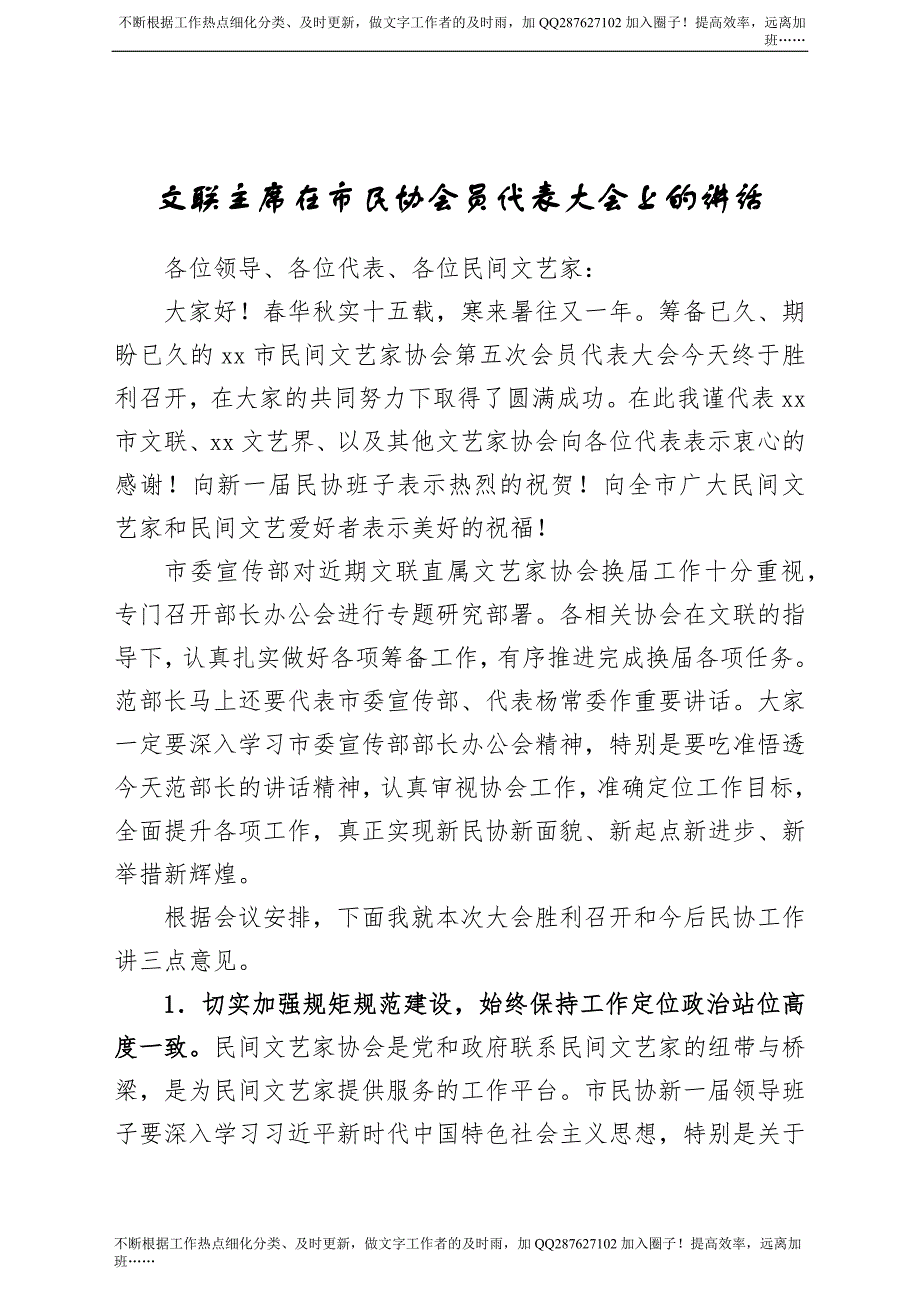 不断根据工作热点细化分类、及时更新，做文字工作者的及时雨，加 QQ287627102 加入圈子！提高效率，远离加
班……
文联主席在市民协会员代表大会上的讲话
各位领导、各位代表、各位民间文艺家：
大家好！春华秋实十五载，寒来暑往又一年。筹备已久、期
盼已久的 xx 市民间文艺家协会第五次会员代表大会今天终于胜
利召开，在大家的共同努力下取得了圆满成功。在此我谨代表 xx
市文联、xx 文艺界、以及其他文艺家协会向各位代表表示衷心的
感谢！向新一届民协班子表示热烈的祝贺！向全市广大民间文
艺家和民间文艺爱好者表示美好的祝福！
市委宣传部对近期文联直属文艺家协会换届工作十分重视，
专门召开部长办公会进行专题研究部署。各相关协会在文联的指
导下，认真扎实做好各项筹备工作，有序推进完成换届各项任务。
范部长马上还要代表市委宣传部、代表杨常委作重要讲话。大家
一定要深入学习市委宣传部部长办公会精神，特别是要吃准悟透
今天范部长的讲话精神，认真审视协会工作，准确定位工作目标，
全面提升各项工作，真正实现新民协新面貌、新起点新进步、新
举措新辉煌。
根据会议安排，下面我就本次大会胜利召开和今后民协工作
讲三点意见。
1．切实加强规矩规范建设，始终保持工作定位政治站位高
度一致。民间文艺家协会是党和政府联系民间文艺家的纽带与桥
梁，是为民间文艺家提供服务的工作平台。市民协新一届领导班
子要深入学习习近平新时代中国特色社会主义思想，特别是关于
不断根据工作热点细化分类、及时更新，做文字工作者的及时雨，加 QQ287627102 加入圈子！提高效率，远离加
班……